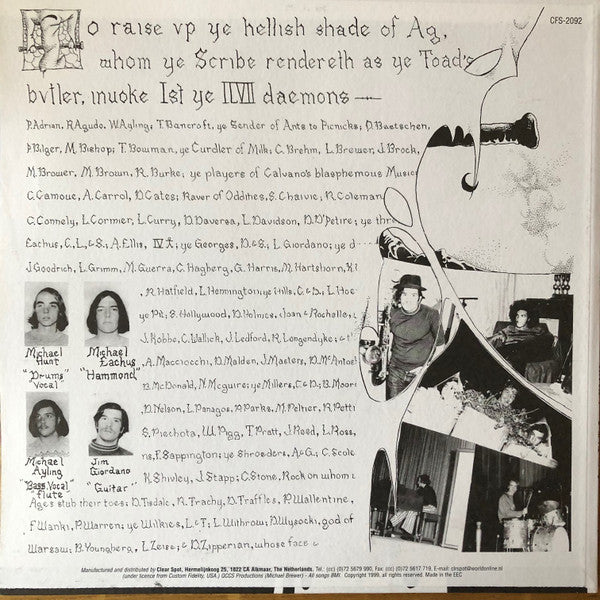 CFS-2092
To raise vp ye hellish shade of Ag,
whom ye Scribe rendereth as ye Toad's
bvtler, invoke Ist ye IIVII daemons —
P. Adrian, R. Agudo, W. Ayling; T. Bancroft, ye Sender of Ants to Picnicks; D. Baetschen,
P. Bilger, M. Bishop; T. Bowman, ye Curdler of Milk; C. Brehm, L. Brewer, J. Brock,
M. Brower, M. Brown, R. Burke; ye players of Calvano's blasphemous Music
C. Camoue, A. Carrol, D. Cates; Raver of Oddities, S. Chaivie, R. Coleman,
C. Connely, L. Cormier, L. Curry, D. Daversa, L. Davidson, D. D'Petire; ye thre
Eachus, C., L., & S.; A. Ellis, IV X; ye Georges, D. & S.; L. Giordano; ye d
J. Goodrich, L. Grimm, M. Guerra, C. Hagberg, G. Harris, M. Hartshorn, K.
R. Hatfield, L. Hennington; ye Hills, C. & D.; L. Hoe
ye Pit; S. Hollywood, D. Holmes, Joan & Rochelle,
J. Kobbe, C. Wallick, J. Ledford, R. Longendyke; & t
A. Macciocchi, D. Malden, J. Masters, D. McAntoe
B. McDonald, N. Mcguire; ye Millers, C. & D.; B. Moori
D. Nelson, L. Panagos, A. Parks, M. Peltier, R. Petti
S. Piechota, W. Pigg, T. Pratt, J. Reed, L. Ross,
ns, F. Sappington; ye Shroeders, A. & G.; C. Scole
K. Shivley, J. Stapp; C. Stone, Rock on whom
Ages stub their toes; D. Tisdale, R. Trachy, D. Traffles, P. Wallentine,
F. Wanki, P. Warren; ye Wilkies, L. & T.; L. Withrow; D. Wysocki, god of
Warsaw; B. Youngberg, L. Zeise; & D. Zipperian, whose face
Michael Hunt
"Drums" vocal
Michael Eachus
"Hammond"
Michael Ayling
"Bass, Vocal" flute
Jim Giordano
"Guitar"
Manufactured and distributed by Clear Spot, Hermelijnkoog 25, 1822 CA Alkmaar, The Netherlands. Tel.: (cc) (0)72 5679 990, Fax: (cc) (0)72 5617 719, E-mail: clespot@worldonline.nl
(under licence from Custom Fidelity, USA.) OCCS Productions (Michael Brewer) - All songs BMI. Copyright 1999, all rights reserved. Made in the EEC